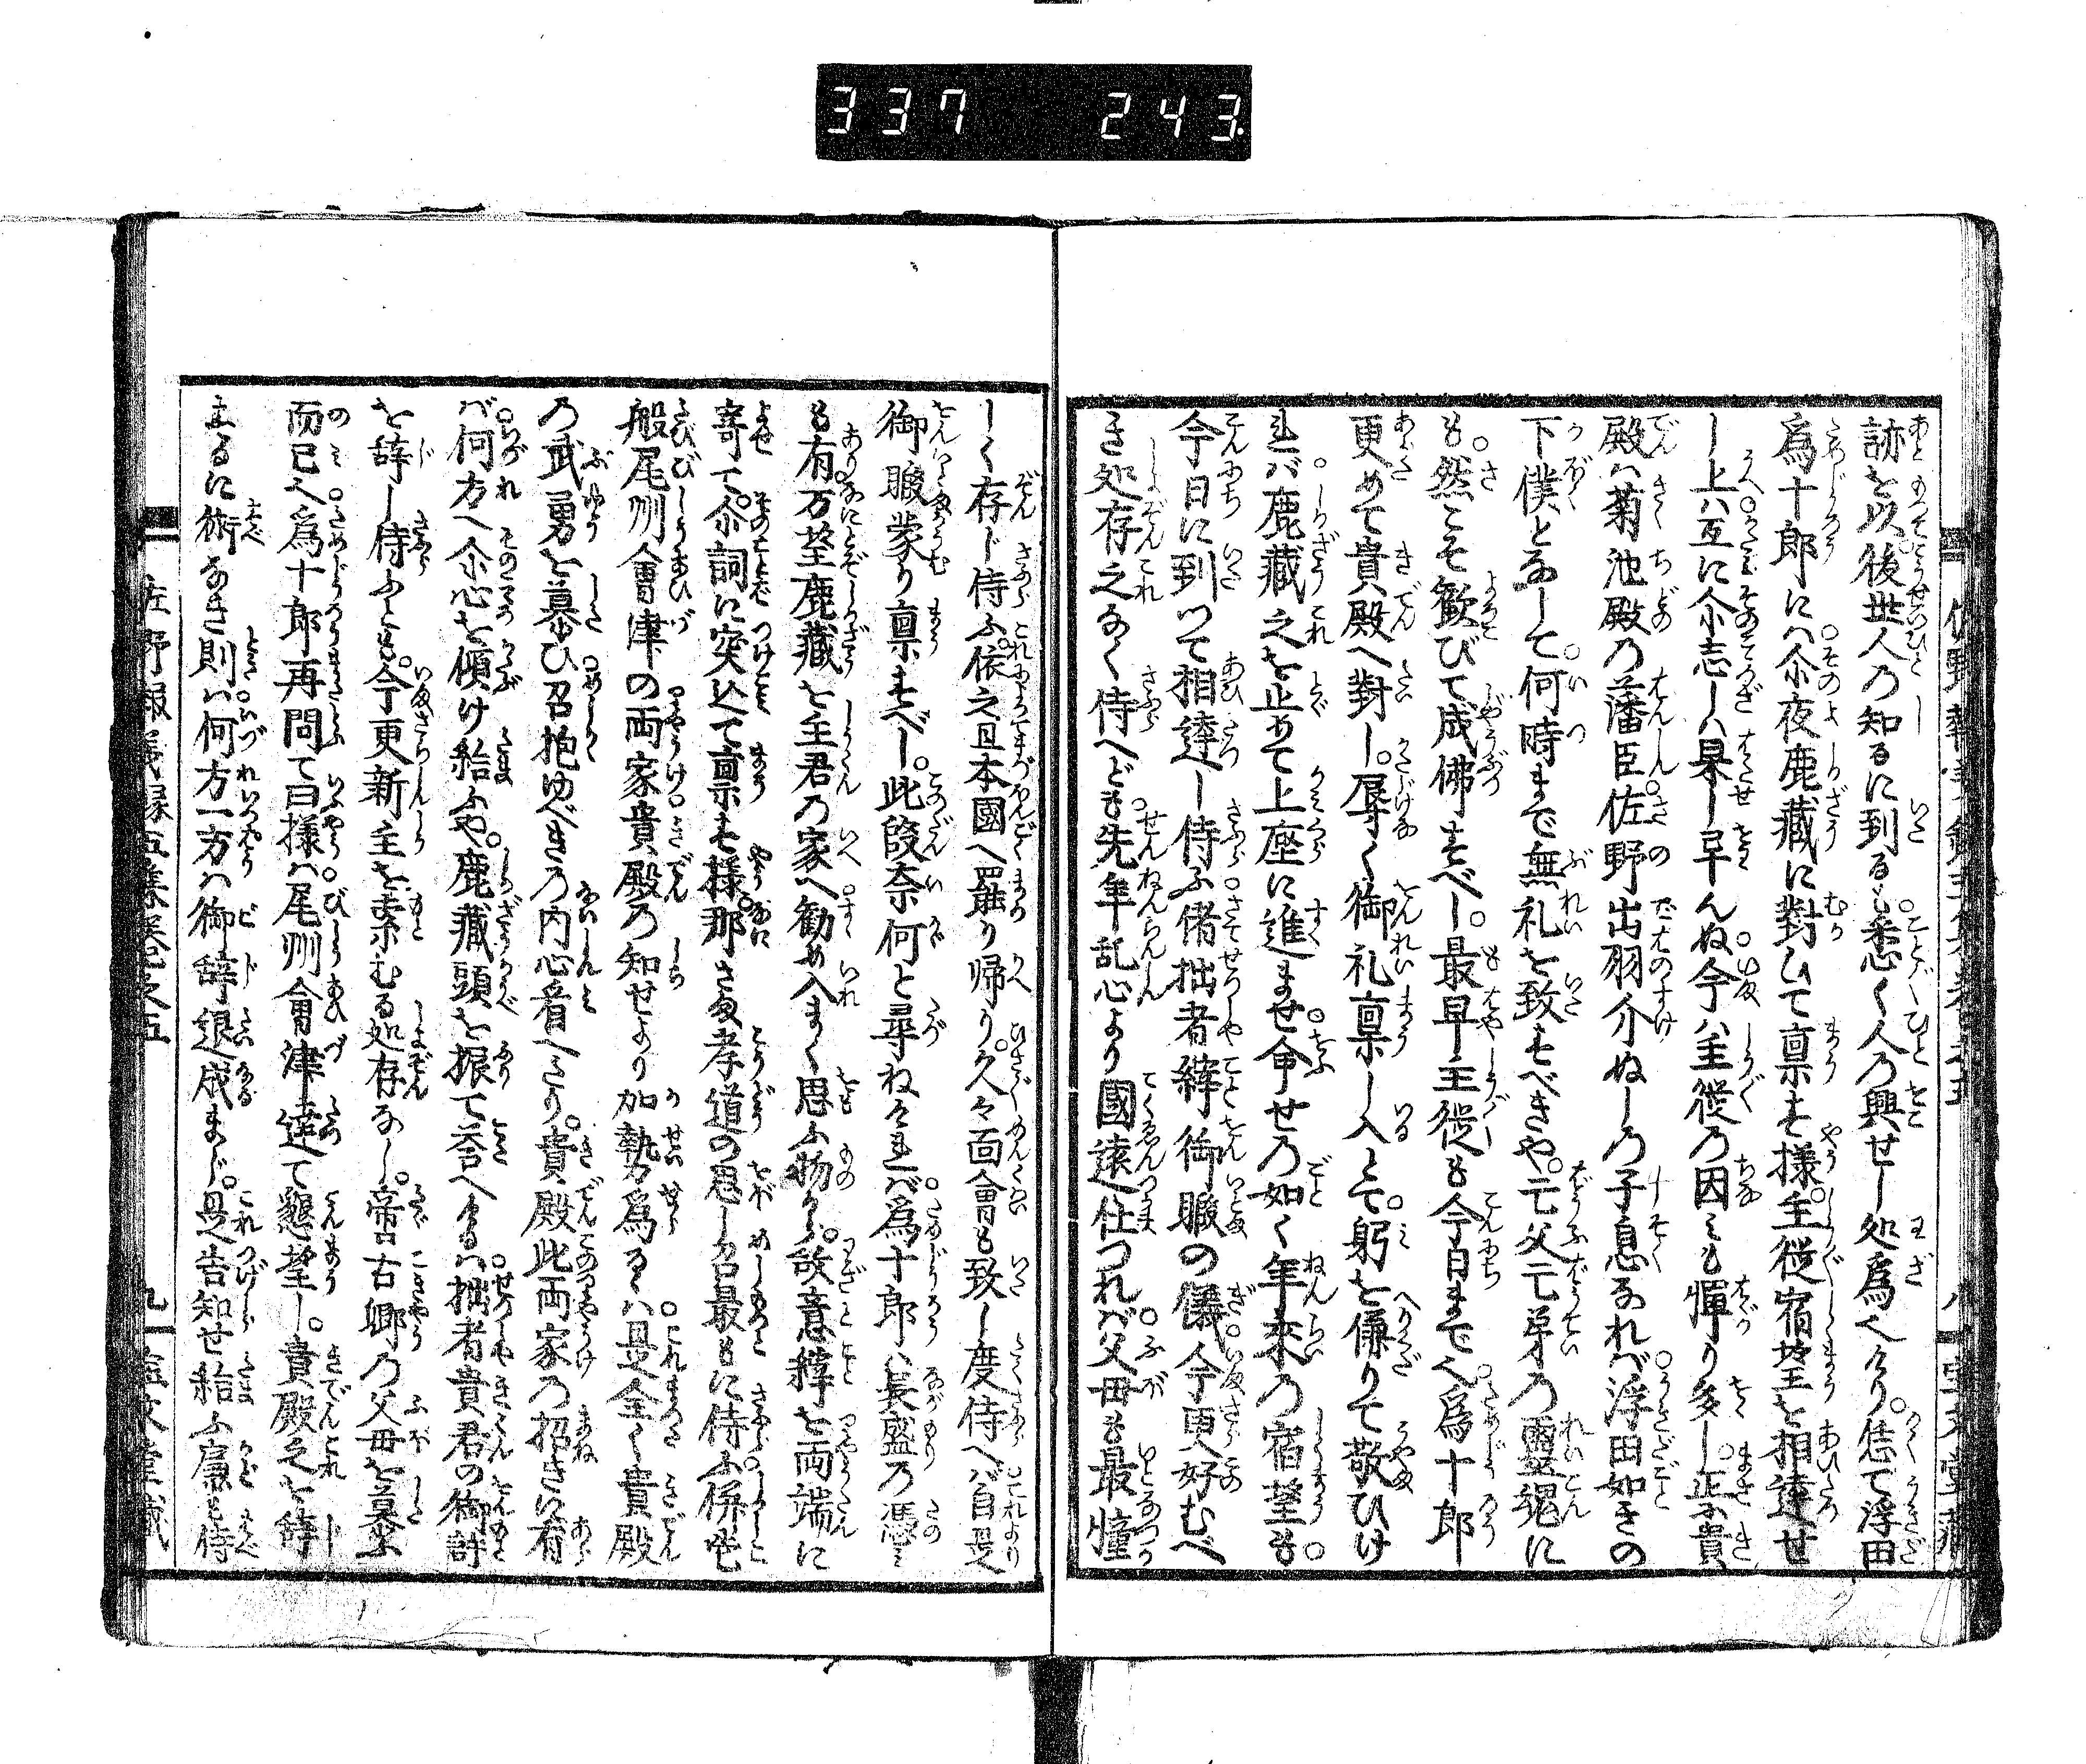 337 243
跡を以後世人の知るに到るも悉く人の興せし処為也けり。恁て浮田
為十郎には尒夜鹿蔵に對ひて稟す様主従宿望を相達せ
し上八互に尒志しハ果し早んぬ今ハ主従の因みも憚り多し正に貴
殿ハ菊池殿の藩臣佐野出羽介ぬしの子息なれバ浮田如きの
下僕となして何時まで無礼を致すべきや。亡父亡弟の靈魂に
も。然こそ歓びて成佛すべし。最早主従も今日まで也為十郎
更めて貴殿へ對し。辱く御礼稟し入るとて。躬を傴りて敬ひけ
れバ鹿蔵之を止めて上座に進ませ命せの如く年来の宿望も
今日に到つて相達し侍ふ偖拙者緯御暇の儀今更好むべ
き処存之なく侍へども先年乱心より國遠仕つれバ父母も最憧
しく存じ侍ふ。依之且本國へ罷り帰り。久々面會も致し度侍へバ自是
御暇蒙り稟すべし。此段奈何と尋ねけれバ為十郎ハ長盛の憑み
も有万望鹿蔵を主君の家へ勧め入まく思ふ物から。故意緯を両端に
寄て。尒詞に突込て稟す様。那さま孝道の思し召最もに侍ふ併唯
般尾州會津の両家貴殿の知せより加勢為るハ是全く貴殿
の武勇を慕ひ召抱ゆべきの内心看へたり。貴殿此両家の招きに有
バ何方へ尒心を傾け給ふや。鹿蔵頭を振て答へるハ拙者貴君の御許
を辞し侍ふとも。今更新主を索むる処存なし。啻古郷の父母を慕ふ
而已也為十郎再問て曰様ハ尾州會津達て懇望し。貴殿之を辞
まるに術なき則ハ何方一方ハ御辞退成まじ。是告知せ給ふ廉も侍
佐野報義録五集巻之五
九